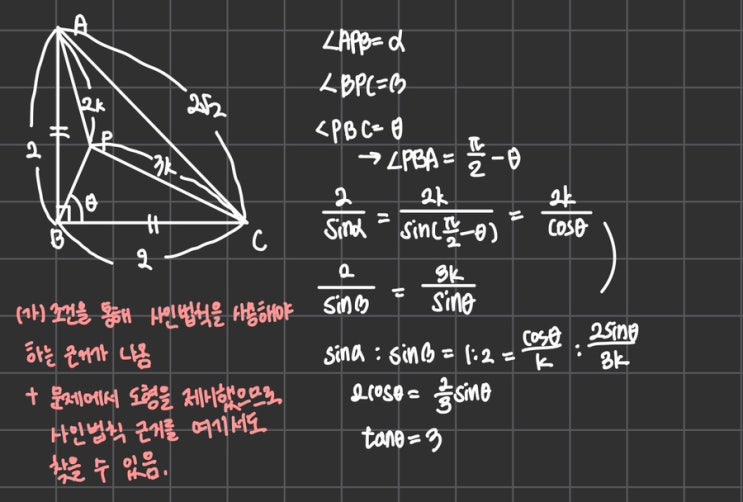 A
2k
2√2
P
3k
2
θ
B
2
C
∠APB=α
∠BPC=β
∠PBC=θ
→∠PBA=π/2-θ
2/sinα = 2k/sin(π/2-θ) = 2k/cosθ
2/sinβ = 3k/sinθ
sinα : sinβ = 1:2 = cosθ/k : 2sinθ/3k
2cosθ = 2/3 sinθ
tanθ=3
(가) 조건을 통해 사인법칙을 사용해야
하는 근거가 나옴
+ 문제에서 도형을 제시했으므로
사인법칙 근거를 여기서도
찾을 수 있음.